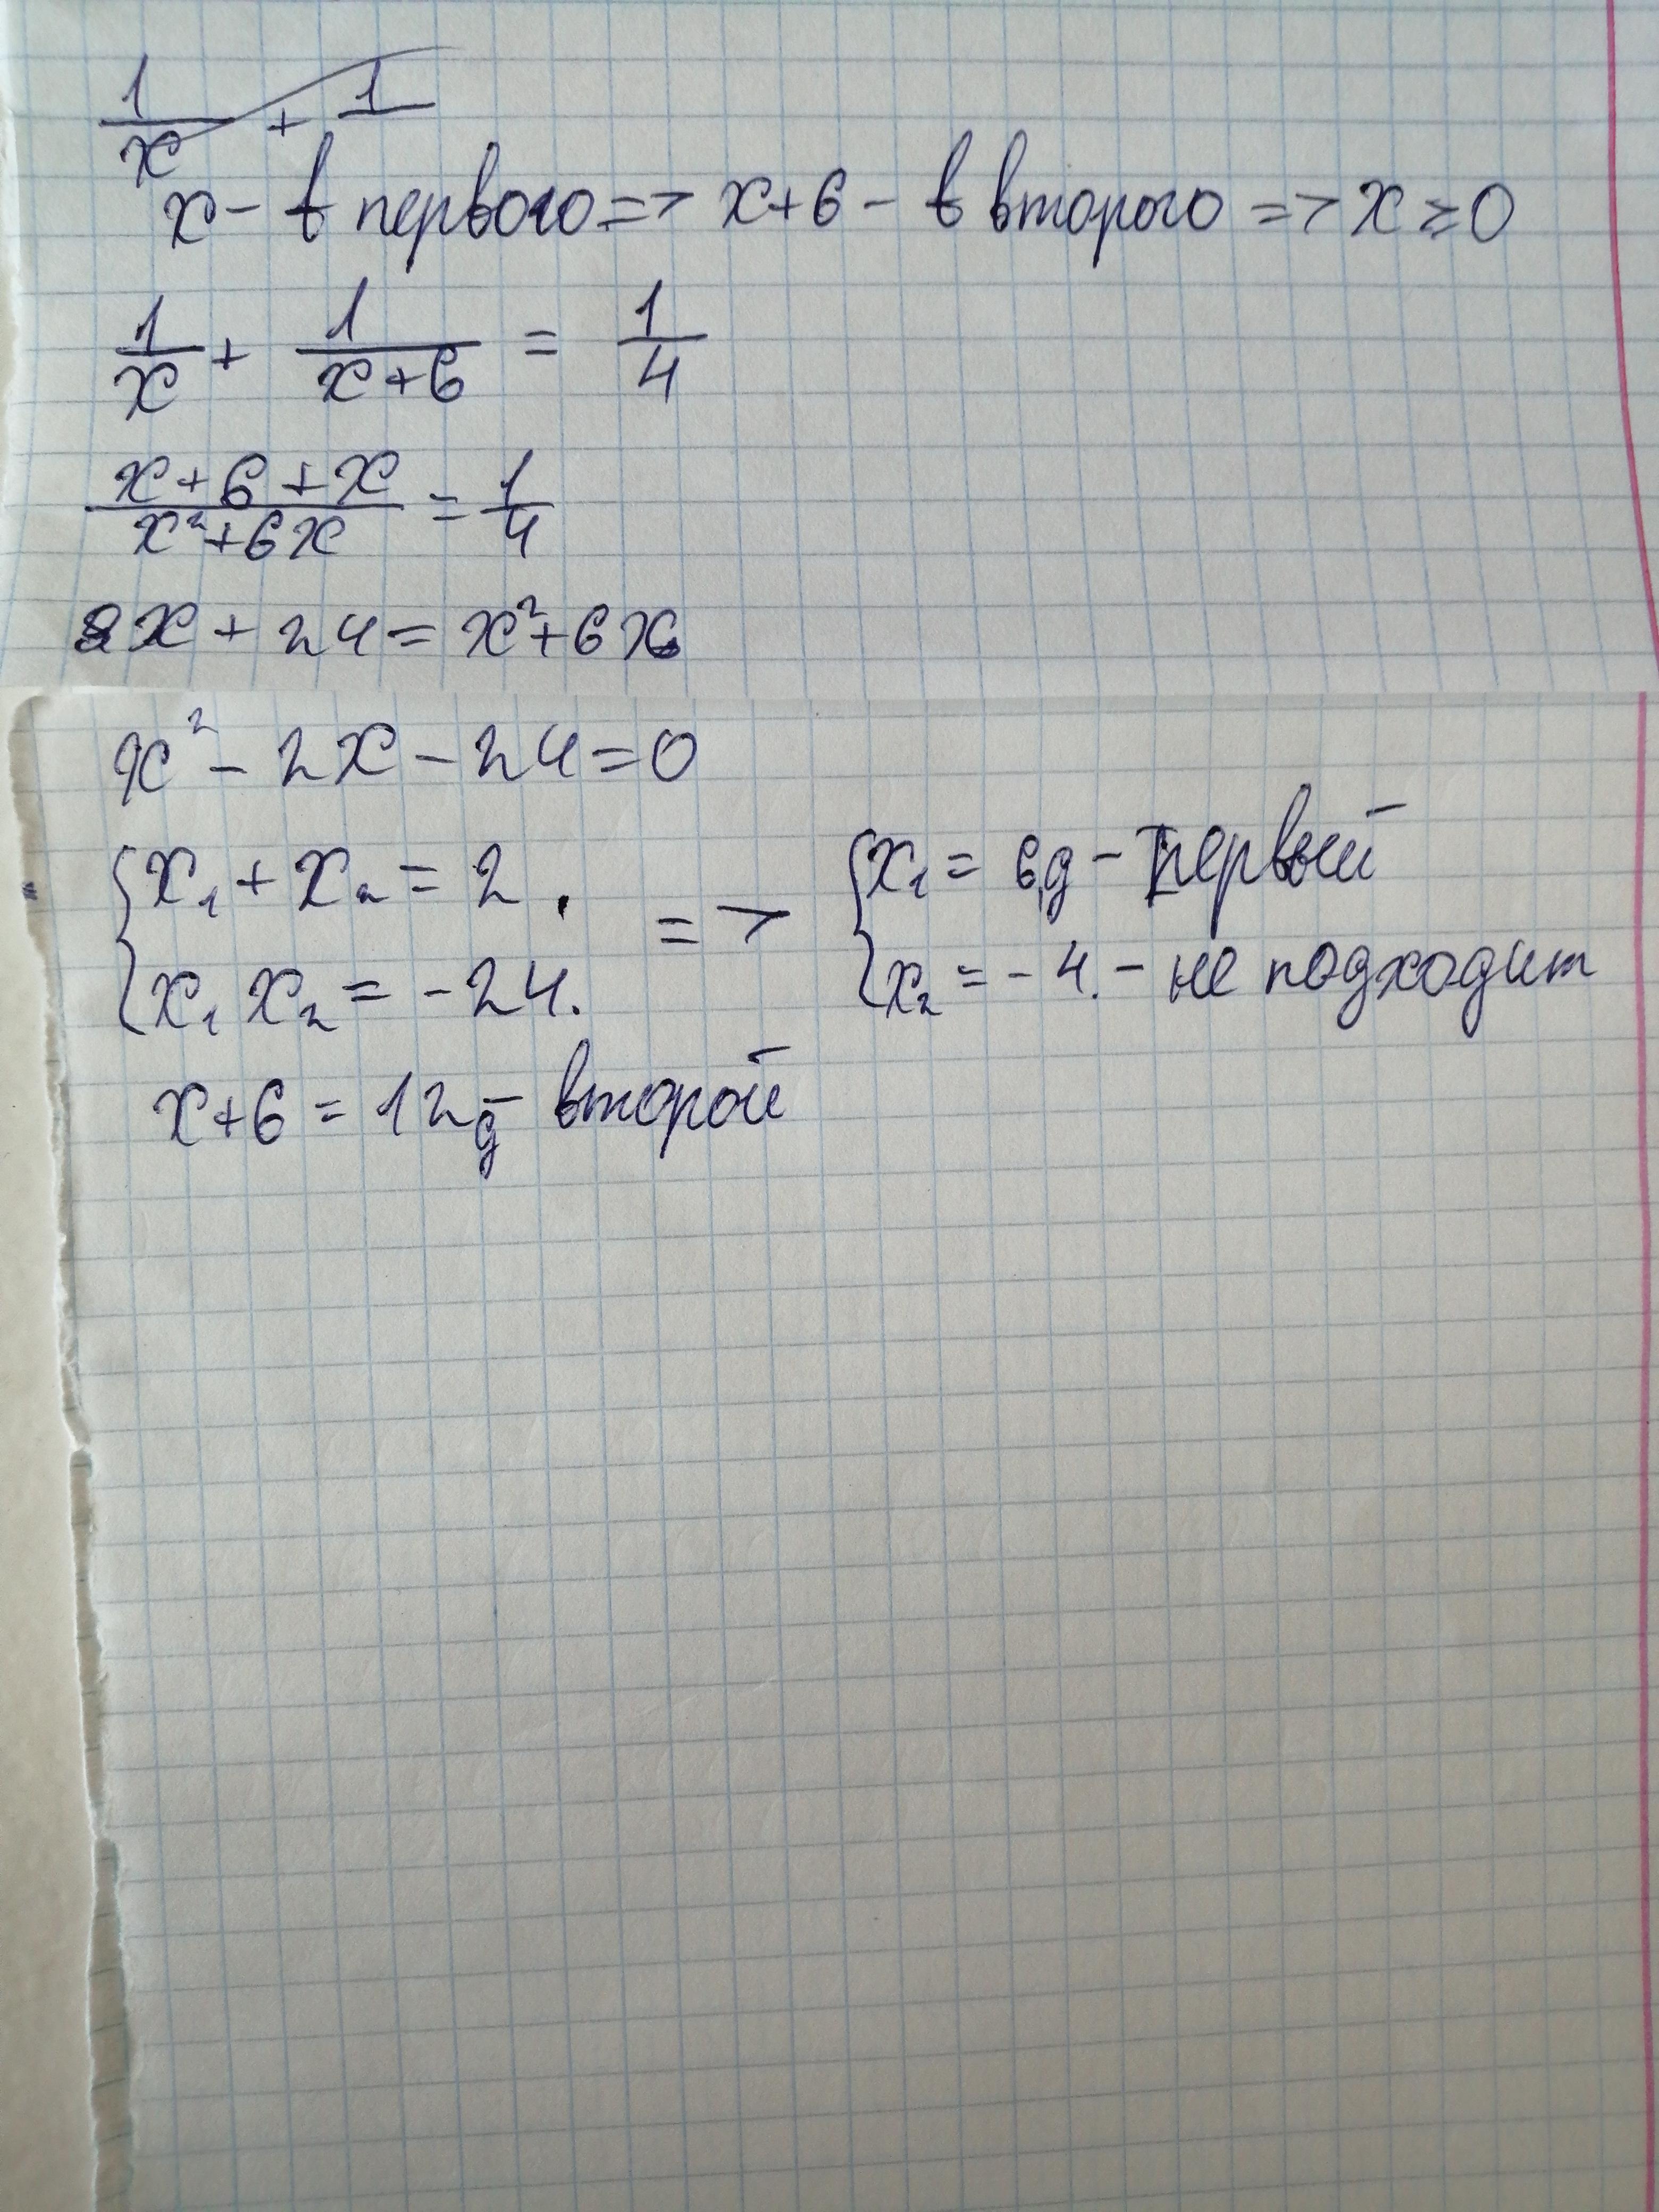 1/x + 1
x - в первого => x+6 - в второго => x ≥ 0
1/x + 1/(x+6) = 1/4
(x+6+x)/(x²+6x) = 1/4
8x + 24 = x² + 6x
x² - 2x - 24 = 0
{ x₁ + x₂ = 2 . => { x₁ = 6 д - Первый
{ x₁ x₂ = -24. { x₂ = -4. - не подходит
x+6 = 12 д - второй